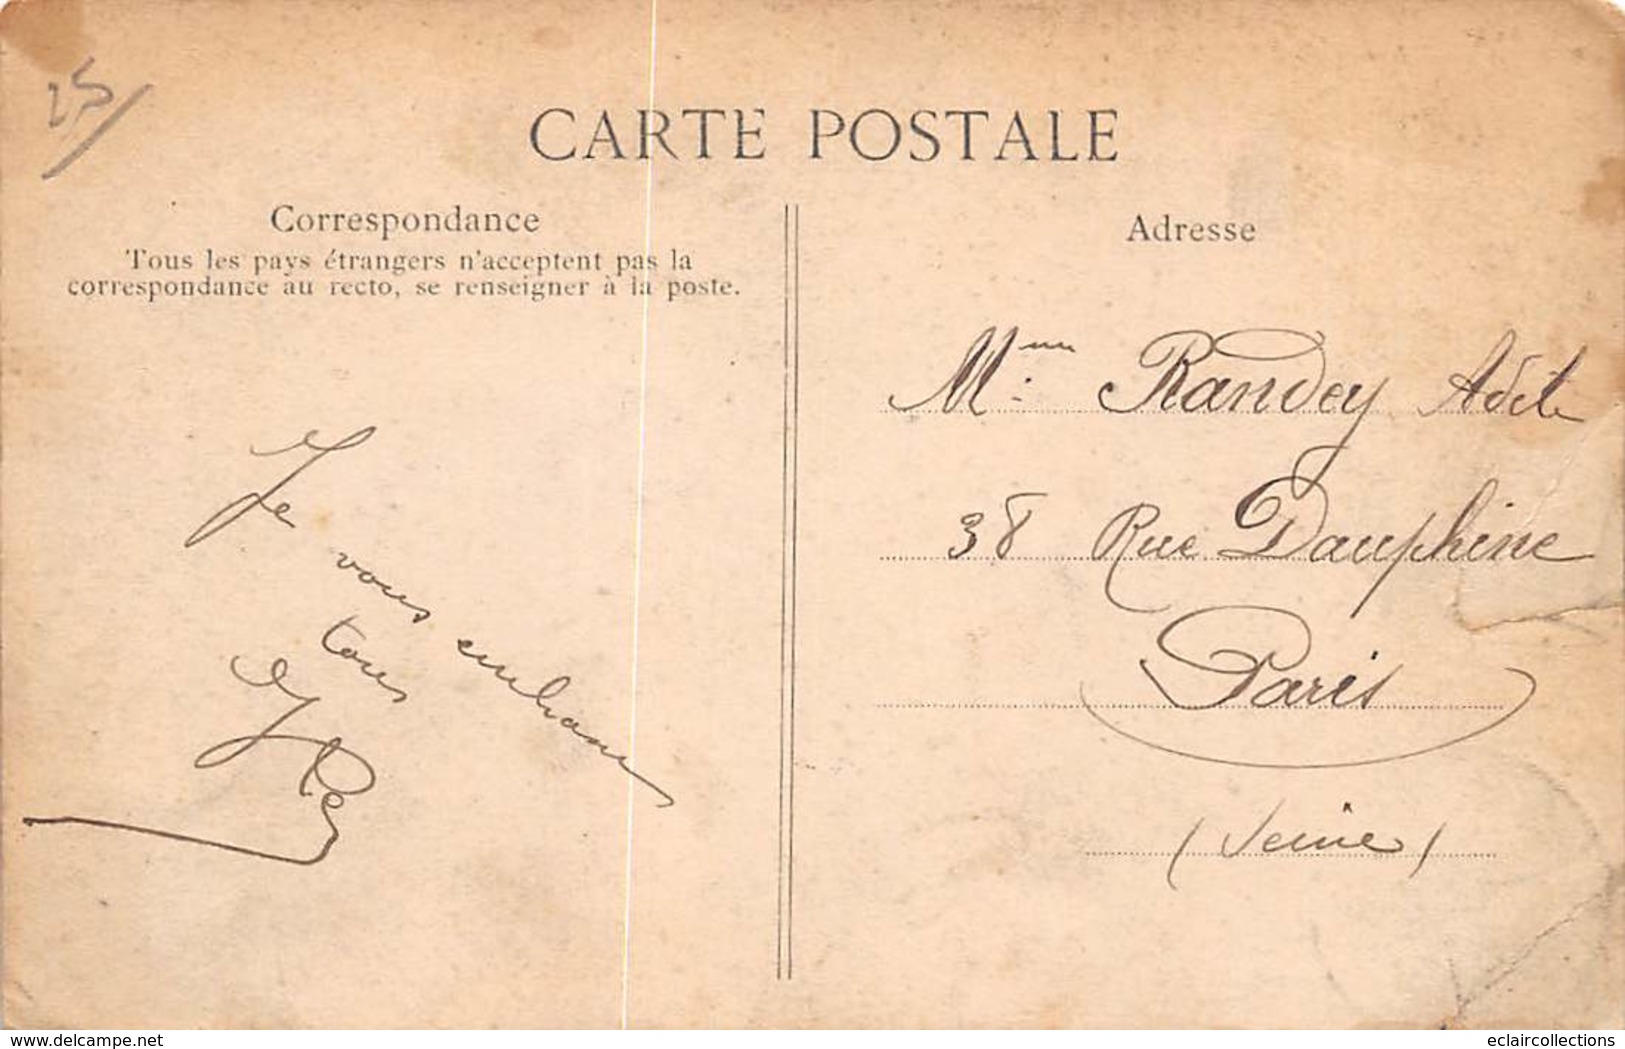 25/
CARTE POSTALE
Correspondance
Tous les pays étrangers n'acceptent pas la
correspondance au recto, se renseigner à la poste.
Je vous embrasse
tous
Adresse
Mme Randey Adèle
38 Rue Dauphine
Paris
(Seine)
www.delcampe.net
eclaircollections